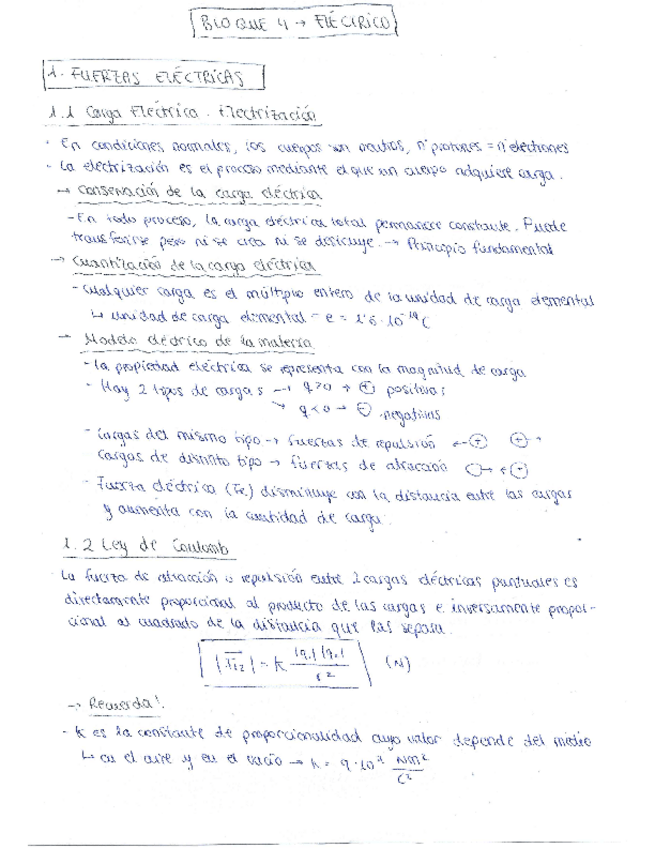 BLOQUE 4 → ELÉCTRICO
1. FUERZAS ELÉCTRICAS
1.1 Carga Eléctrica. Electrización
· En condiciones normales, los cuerpos son neutros, nº protones = nº electrones
· La electrización es el proceso mediante el que un cuerpo adquiere carga.
→ Conservación de la carga eléctrica
- En todo proceso, la carga eléctrica total permanece constante. Puede
transferirse pero ni se crea ni se destruye. → Principio fundamental
→ Cuantización de la carga eléctrica
- Cualquier carga es el múltiplo entero de la unidad de carga elemental
↳ unidad de carga elemental = e = 1'6 · 10⁻¹⁹ C
→ Modelo eléctrico de la materia
- La propiedad eléctrica se representa con la magnitud de carga
- Hay 2 tipos de cargas → q>0 → ⊕ positivas
→ q<0 → ⊖ negativas
- Cargas del mismo tipo → fuerzas de repulsión ←⊕ ⊕→
Cargas de distinto tipo → fuerzas de atracción ⊖→ ←⊕
- Fuerza eléctrica (Fe) disminuye con la distancia entre las cargas
y aumenta con la cantidad de carga.
1.2 Ley de Coulomb
La fuerza de atracción o repulsión entre 2 cargas eléctricas puntuales es
directamente proporcional al producto de las cargas e inversamente propor-
cional al cuadrado de la distancia que las separa.
|F₁₂| = K |q₁| |q₂| / r² (N)
→ Recuerda!
- K es la constante de proporcionalidad cuyo valor depende del medio
↳ en el aire y en el vacío → k = 9 · 10⁹ Nm² / C²